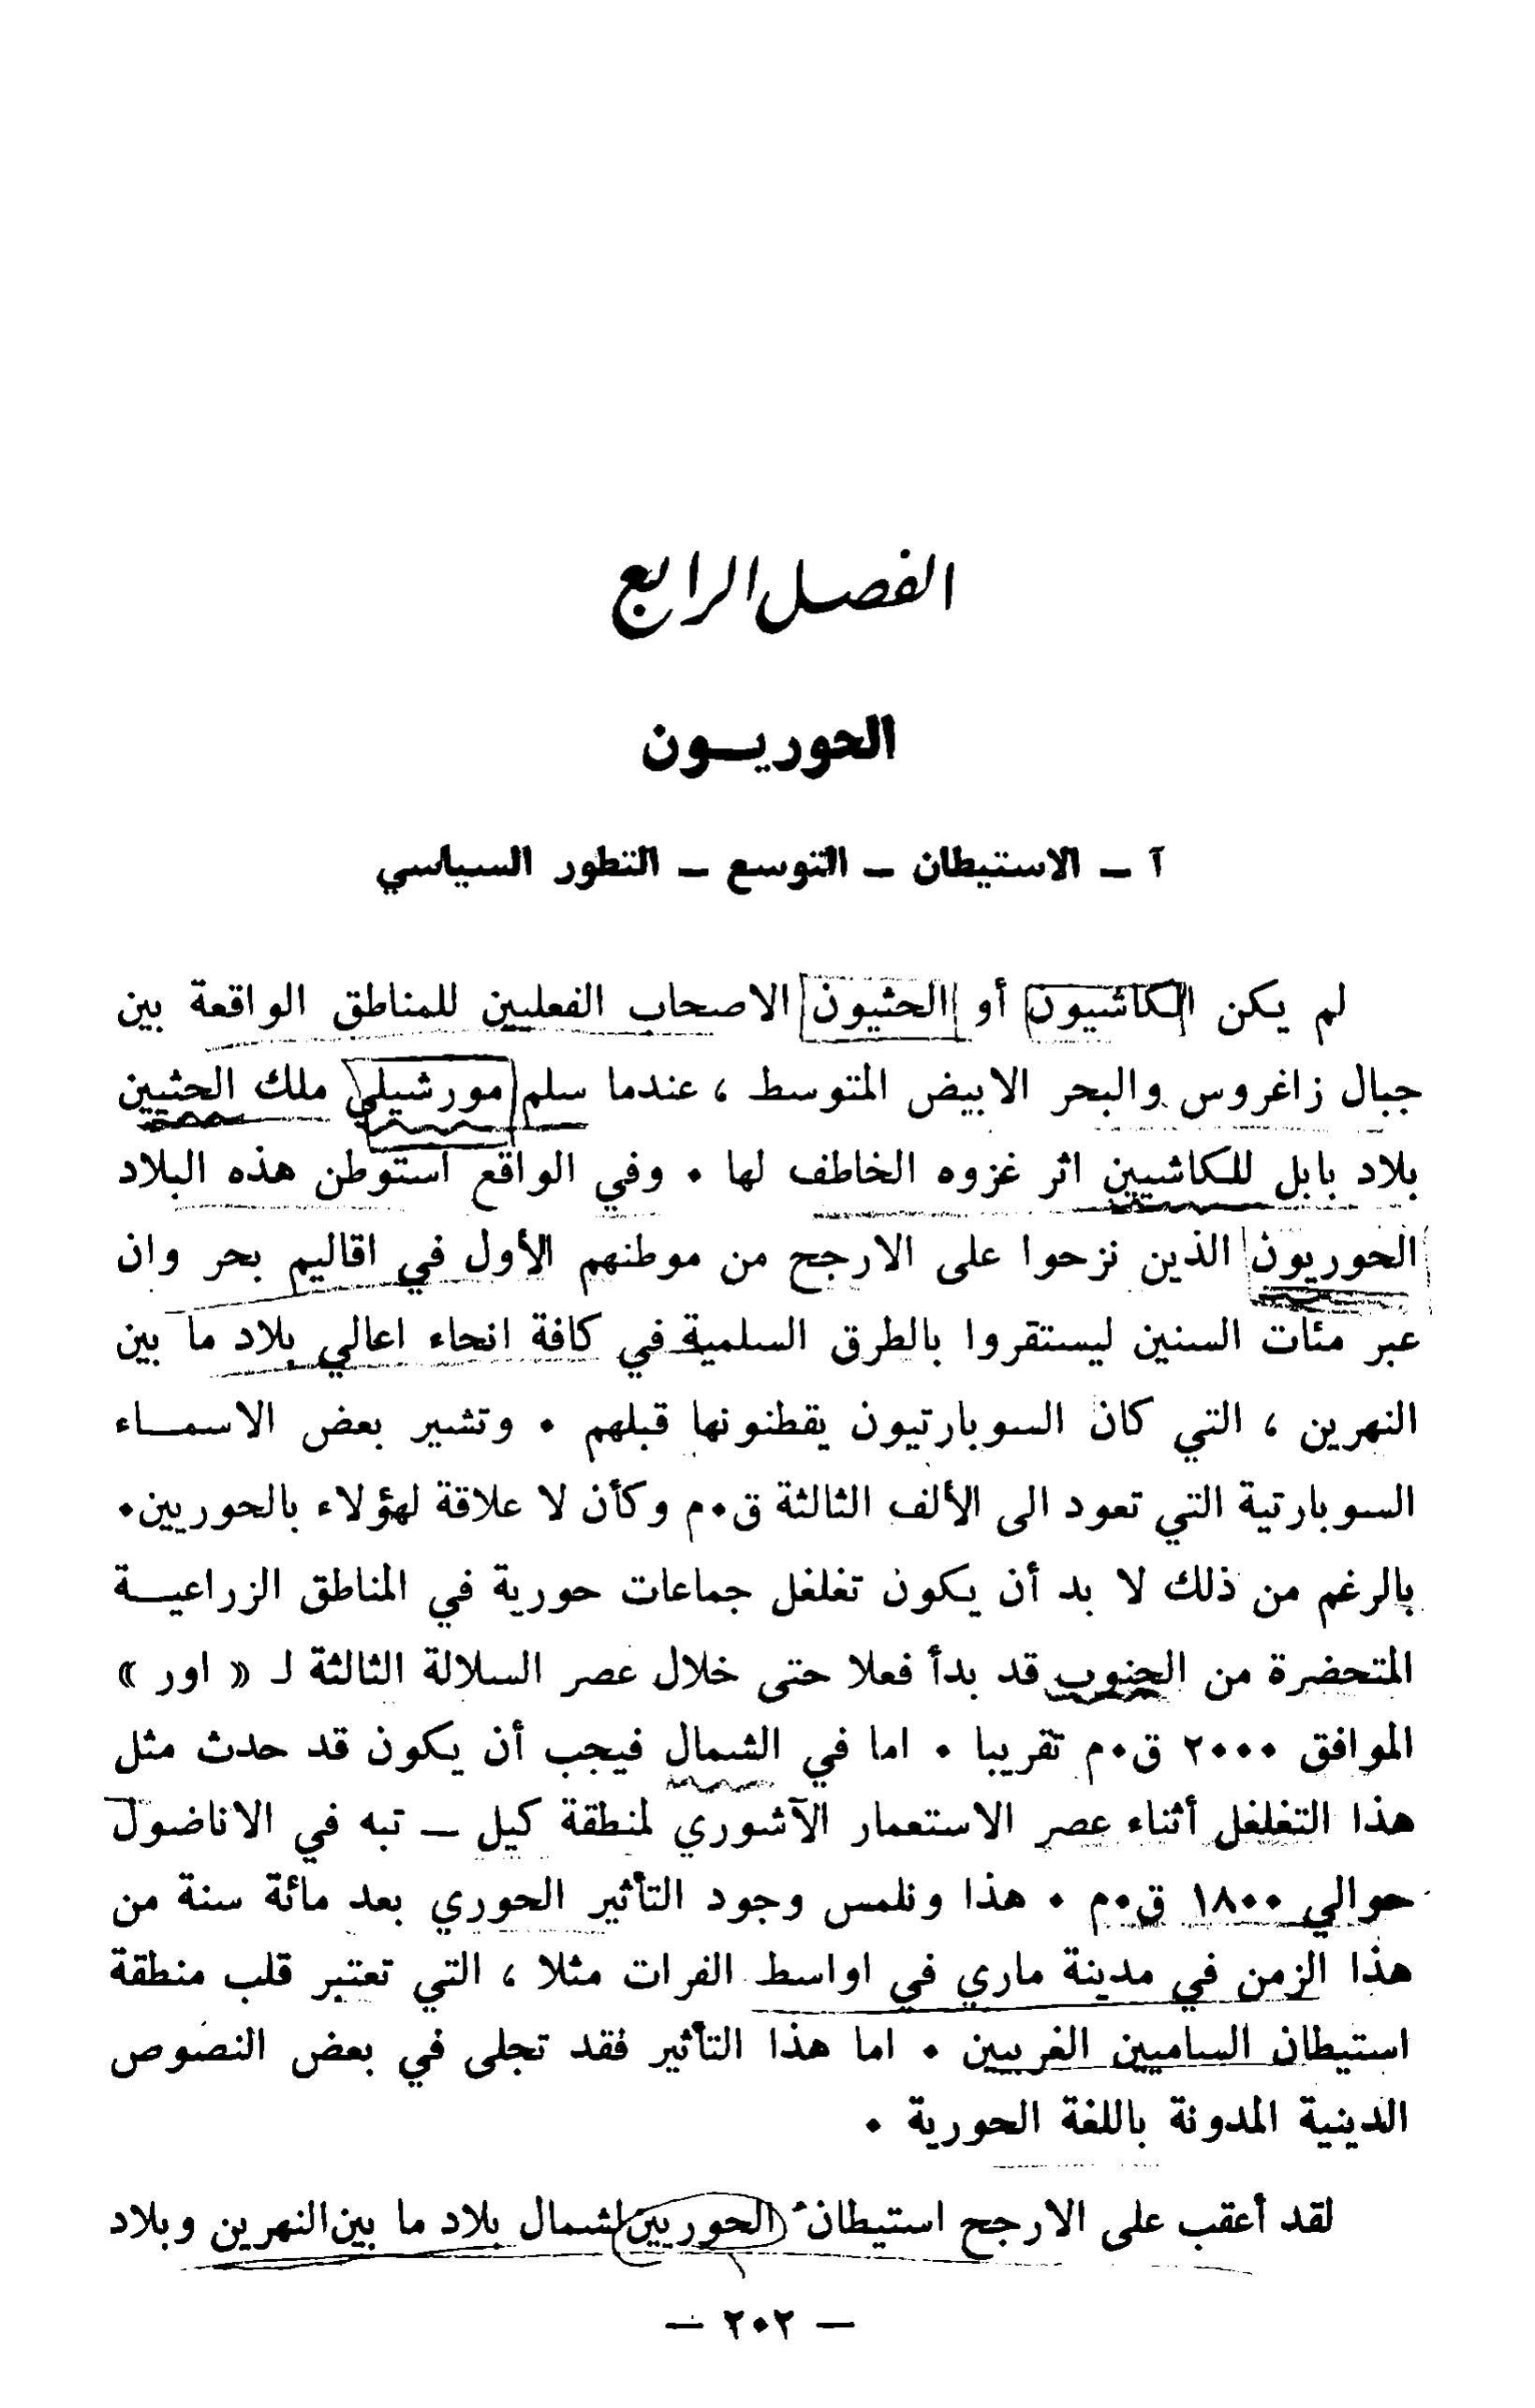 الفصل الرابع
الحوريــون
آ – الاستيطان – التوسع – التطور السياسي
لم يكن الكاشيون أو الحثيون الاصحاب الفعليين للمناطق الواقعة بين
جبال زاغروس والبحر الابيض المتوسط ، عندما سلم مورشيلي ملك الحثيين
بلاد بابل للكاشيين اثر غزوه الخاطف لها ٠ وفي الواقع استوطن هذه البلاد
الحوريون الذين نزحوا على الارجح من موطنهم الأول في اقاليم بحر وان
عبر مئات السنين ليستقروا بالطرق السلمية في كافة انحاء اعالي بلاد ما بين
النهرين ، التي كان السوبارتيون يقطنونها قبلهم ٠ وتشير بعض الاسمــاء
السوبارتية التي تعود الى الألف الثالثة ق٠م وكأن لا علاقة لهؤلاء بالحوريين٠
بالرغم من ذلك لا بد أن يكون تغلغل جماعات حورية في المناطق الزراعيــة
المتحضرة من الجنوب قد بدأ فعلا حتى خلال عصر السلالة الثالثة لـ « اور »
الموافق ٢٠٠٠ ق٠م تقريبا ٠ اما في الشمال فيجب أن يكون قد حدث مثل
هذا التغلغل أثناء عصر الاستعمار الآشوري لمنطقة كيل – تبه في الاناضول
حوالي ١٨٠٠ ق٠م ٠ هذا ونلمس وجود التأثير الحوري بعد مائة سنة من
هذا الزمن في مدينة ماري في اواسط الفرات مثلا ، التي تعتبر قلب منطقة
استيطان الساميين الغربيين ٠ اما هذا التأثير فقد تجلى في بعض النصوص
الدينية المدونة باللغة الحورية ٠
لقد أعقب على الارجح استيطان الحوريين لشمال بلاد ما بين النهرين وبلاد
– ٢٠٢ –